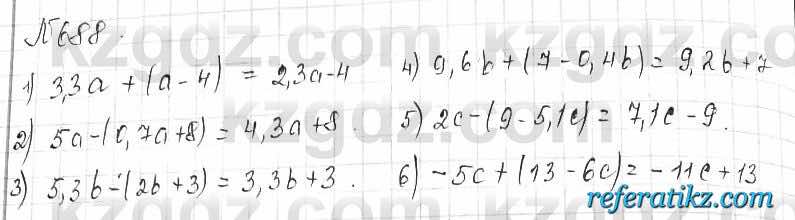 №688.
1) 3,3a + (a - 4) = 2,3a - 4
2) 5a - (0,7a + 8) = 4,3a + 8.
3) 5,3b - (2b + 3) = 3,3b + 3.
4) 9,6b + (7 - 0,4b) = 9,2b + 7
5) 2c - (9 - 5,1c) = 7,1c - 9.
6) -5c + (13 - 6c) = -11c + 13
referatikz.com